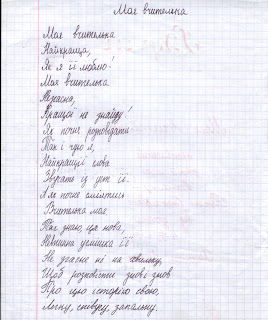 Моя вчителька
Моя вчителька
Найкраща,
Як я її люблю!
Моя вчителька
Чудесна,
Кращої не знайду!
Як почне розповідати
Так і чую я,
Найкращії слова
Звучать із уст її.
А як почне сміятись
Вчителька моя
Вже знаю, що нова,
усмішка її
Не згасне ні на хвильку,
Щоб розповісти знов і знов
Про цю історію свою,
Легку, співучу, запальну.